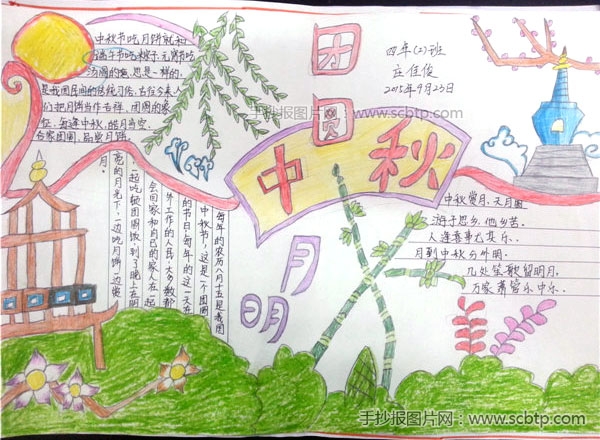 中秋节吃月饼就和
端午节吃粽子元宵节吃
汤圆的意思是一样的。
是我国民间的传统习俗。古往今来人
们把月饼当作吉祥、团圆的象
征。每逢中秋,皓月当空,
合家团圆,品尝月饼。
团圆
中秋
月
明
四年(2)班
庄佳俊
2015年9月25日
手抄报图片网:www.scbtp.com
每年的农历八月十五是我国
中秋节,这是一个团圆
的节日。每年的这一天在
外工作的人民大多数都
会回家和自己的家人在一起
一起吃顿团圆饭到了晚上在明
亮的月光下,一边吃月饼一边赏
月。
中秋赏月,天月圆
游子思乡,他乡苦。
人逢喜事尤其乐。
月到中秋分外明。
几处笙歌留朗月,
万家萧管乐中乐。
手抄报图片网:www.scbtp.com